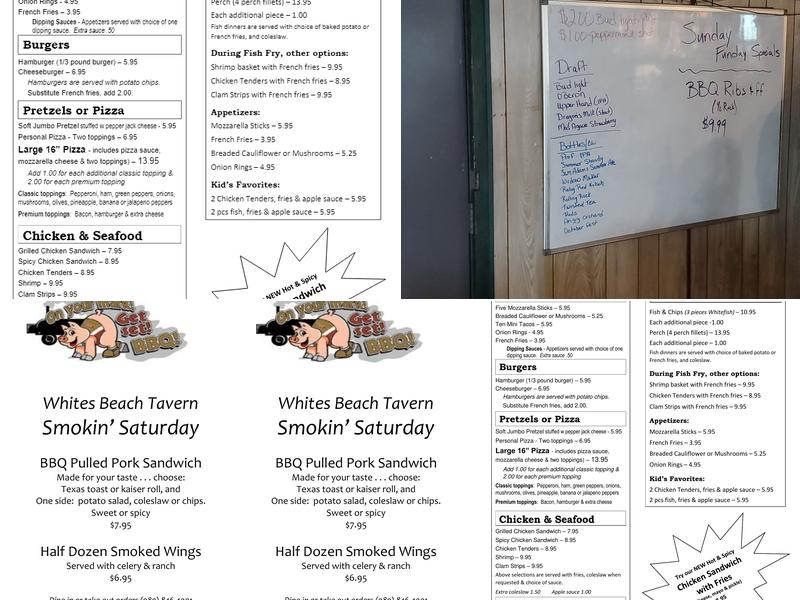 Onion Rings - 4.95
French Fries – 3.95
Dipping Sauces - Appetizers served with choice of one
dipping sauce. Extra sauce .50
Burgers
Hamburger (1/3 pound burger) – 5.95
Cheeseburger – 6.95
Hamburgers are served with potato chips.
Substitute French fries, add 2.00.
Pretzels or Pizza
Soft Jumbo Pretzel stuffed w pepper jack cheese - 5.95
Personal Pizza - Two toppings – 6.95
Large 16” Pizza - includes pizza sauce,
mozzarella cheese & two toppings) – 13.95
Add 1.00 for each additional classic topping &
2.00 for each premium topping
Classic toppings: Pepperoni, ham, green peppers, onions,
mushrooms, olives, pineapple, banana or jalapeno peppers
Premium toppings: Bacon, hamburger & extra cheese
Chicken & Seafood
Grilled Chicken Sandwich – 7.95
Spicy Chicken Sandwich – 8.95
Chicken Tenders – 8.95
Shrimp – 9.95
Clam Strips – 9.95
Perch (4 perch fillets) – 13.95
Each additional piece – 1.00
Fish dinners are served with choice of baked potato or
French fries, and coleslaw.
During Fish Fry, other options:
Shrimp basket with French fries – 9.95
Chicken Tenders with French Fries – 8.95
Clam Strips with French fries – 9.95
Appetizers:
Mozzarella Sticks – 5.95
French Fries – 3.95
Breaded Cauliflower or Mushrooms – 5.25
Onion Rings – 4.95
Kid’s Favorites:
2 Chicken Tenders, fries & apple sauce – 5.95
2 pcs fish, fries & apple sauce – 5.95
NEW Hot & Spicy
$2.00 Bud light
$1.00 peppermint shot
Sunday
Funday Specials
BBQ Ribs & FF
(½ Rack)
$9.99
Draft
Bud light
Oberon
Upper Hand (IPA)
Dragon's Milk (stout)
Mad Dogue Strawberry
Bottles
IPA
Summer Shandy
Sam Adams Summer Ale
Widow Maker
Rolling Rock
Twisted Tea
Reds
Angry Orchard
October Fest
On your mark!
Get
set!
BBQ!
Whites Beach Tavern
Smokin’ Saturday
BBQ Pulled Pork Sandwich
Made for your taste . . . choose:
Texas toast or kaiser roll, and
One side: potato salad, coleslaw or chips.
Sweet or spicy
$7.95
Half Dozen Smoked Wings
Served with celery & ranch
$6.95
On your mark!
Get
set!
BBQ!
Whites Beach Tavern
Smokin’ Saturday
BBQ Pulled Pork Sandwich
Made for your taste . . . choose:
Texas toast or kaiser roll, and
One side: potato salad, coleslaw or chips.
Sweet or spicy
$7.95
Half Dozen Smoked Wings
Served with celery & ranch
$6.95
Five Mozzarella Sticks – 5.95
Breaded Cauliflower or Mushrooms – 5.25
Ten Mini Tacos – 5.95
Onion Rings - 4.95
French Fries – 3.95
Dipping Sauces - Appetizers served with choice of one
dipping sauce. Extra sauce .50
Burgers
Hamburger (1/3 pound burger) – 5.95
Cheeseburger – 6.95
Hamburgers are served with potato chips.
Substitute French fries, add 2.00.
Pretzels or Pizza
Soft Jumbo Pretzel stuffed w pepper jack cheese - 5.95
Personal Pizza - Two toppings – 6.95
Large 16” Pizza - includes pizza sauce,
mozzarella cheese & two toppings) – 13.95
Add 1.00 for each additional classic topping &
2.00 for each premium topping
Classic toppings: Pepperoni, ham, green peppers, onions,
mushrooms, olives, pineapple, banana or jalapeno peppers
Premium toppings: Bacon, hamburger & extra cheese
Chicken & Seafood
Grilled Chicken Sandwich – 7.95
Spicy Chicken Sandwich – 8.95
Chicken Tenders – 8.95
Shrimp – 9.95
Clam Strips – 9.95
Above selections are served with fries, coleslaw when
requested & choice of sauce.
Extra coleslaw 1.50 Apple sauce 1.00
Fish & Chips (3 pieces Whitefish) – 10.95
Each additional piece -1.00
Perch (4 perch fillets) – 13.95
Each additional piece – 1.00
Fish dinners are served with choice of baked potato or
French fries, and coleslaw.
During Fish Fry, other options:
Shrimp basket with French fries – 9.95
Chicken Tenders with French Fries – 8.95
Clam Strips with French fries – 9.95
Appetizers:
Mozzarella Sticks – 5.95
French Fries – 3.95
Breaded Cauliflower or Mushrooms – 5.25
Onion Rings – 4.95
Kid’s Favorites:
2 Chicken Tenders, fries & apple sauce – 5.95
2 pcs fish, fries & apple sauce – 5.95
Try our NEW Hot & Spicy
Chicken Sandwich
with Fries